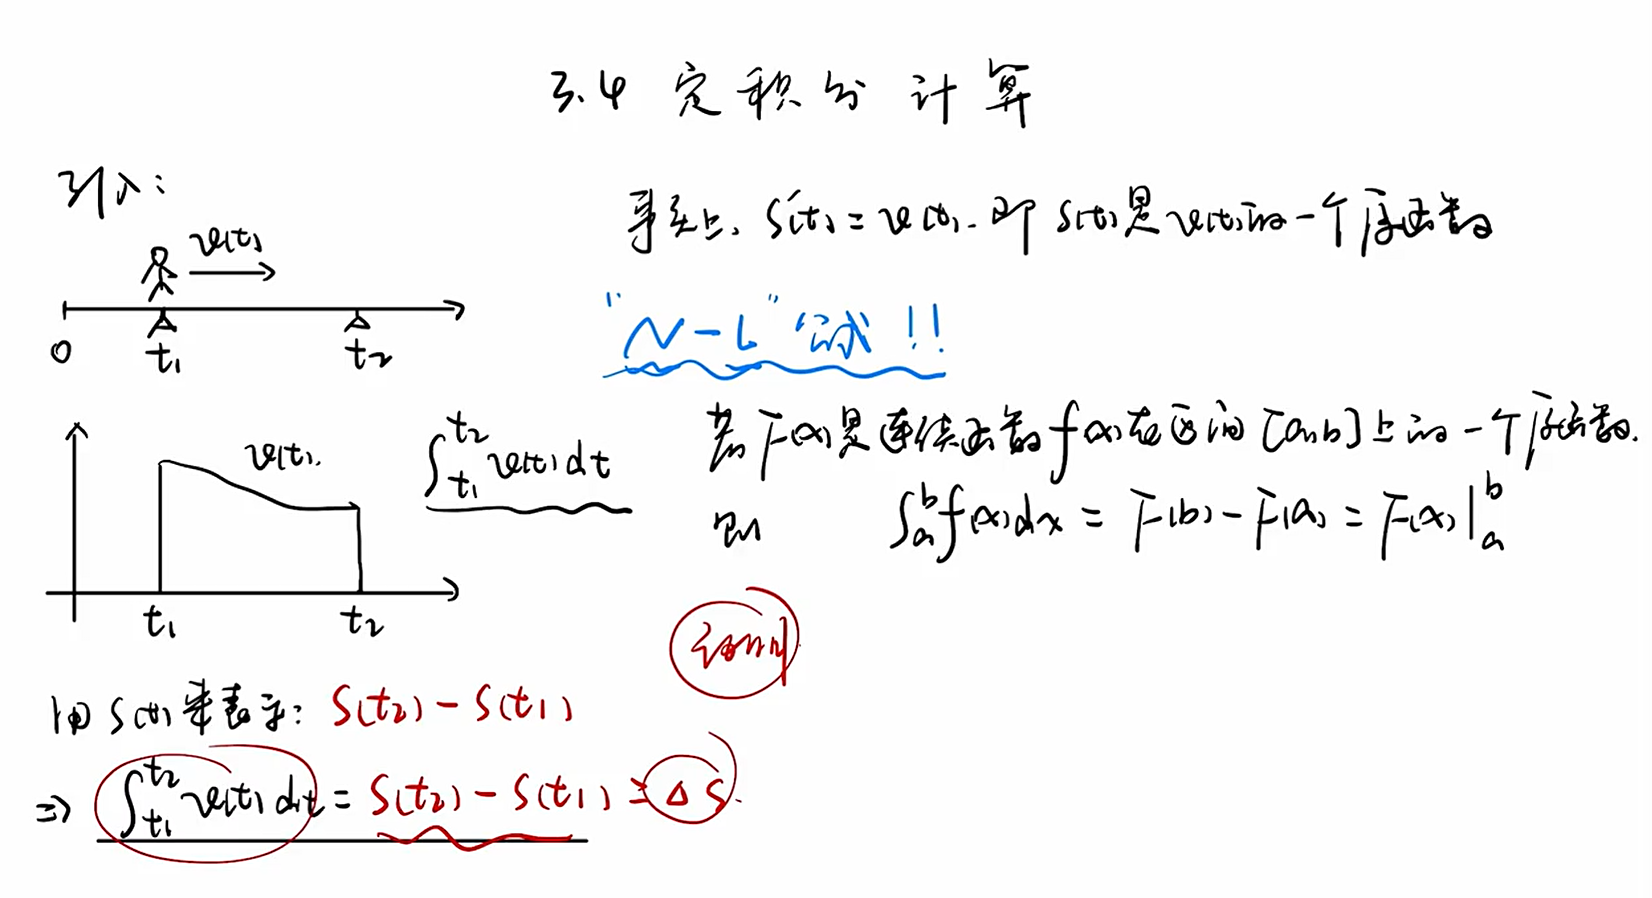 3.4 定积分计算
引入:
v(t)
0 t₁ t₂
v(t).
t₁ t₂
∫_{t₁}^{t₂} v(t) dt
用 S(t) 来表示: S(t₂) - S(t₁)
⇒ ∫_{t₁}^{t₂} v(t) dt = S(t₂) - S(t₁) = Δ S.
事实上, S'(t) = v(t). 即 S(t) 是 v(t) 的一个原函数
"N-L" 公式!!
若 F(x) 是连续函数 f(x) 在区间 [a,b] 上的一个原函数.
则 ∫_a^b f(x) dx = F(b) - F(a) = F(x) |_a^b
证明